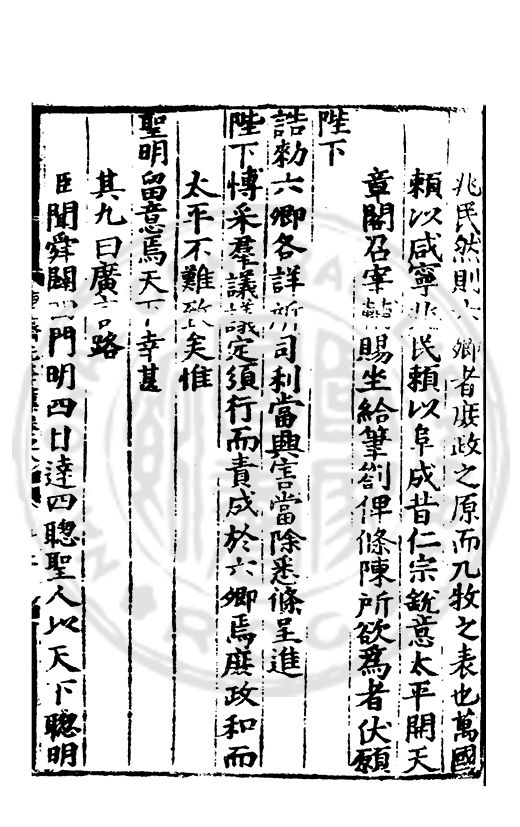 兆民然則六卿者庶政之原而九牧之表也萬國
頼以咸寧兆民頼以阜成昔仁宗銳意太平開天
章閣召宰輔賜坐給筆劄俾條陳所欲爲者伏願
陛下
誥勑六卿各詳所司利當興害當除悉條呈進
陛下博采羣議議定須行而責成於六卿焉庶政和而
太平不難致矣惟
聖明留意焉天下幸甚
其九曰廣言路
臣聞舜闢四門明四目達四聰聖人以天下聰明